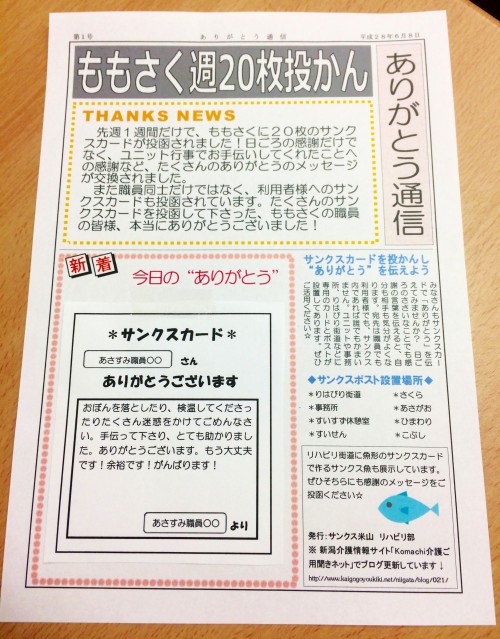 第1号
ありがとう通信
平成28年6月8日
ももさく週20枚投かん
ありがとう通信
THANKS NEWS
先週1週間だけで、ももさくに20枚のサンク
スカードが投函されました!日ごろの感謝だけで
なく、ユニット行事でお手伝いしてくれたことへ
の感謝など、たくさんのありがとうのメッセージ
が交換されました。
また職員同士だけではなく、利用者様へのサン
クスカードも投函されています。たくさんのサン
クスカードを投函して下さった、ももさくの職員
の皆様、本当にありがとうございました!
新着
今日の“ありがとう”
*サンクスカード*
あさすみ職員〇〇 さん
ありがとうございます
おぼんを落としたり、検温してくださっ
たりたくさん迷惑をかけてごめんなさ
い。手伝って下さり、とても助かりまし
た。ありがとうございます。もう大丈夫
です!余裕です!がんばります!
あさすみ職員〇〇 より
サンクスカードを投かんし
“ありがとう”を伝えよう
みなさんもサンクスカー
ドで「ありがとう」を伝
えてみませんか?日ご
ろのささいなことでも感
謝の言葉を伝えると、自
分も相手も気分がよくな
ります。宛先は職員でも
利用者様でも、サンクス
内であれば誰でもかまい
ません。ユニットや事務
所、りはびり街道などに
専用のカードとポストが
設置してあります。ぜひ
ご活用ください☆
◆サンクスポスト設置場所◆
*りはびり街道
*さくら
*事務所
*あさがお
*すいすず休憩室
*ひまわり
*すいせん
*こぶし
リハビリ街道に魚形のサンクスカード
で作るサンクス魚も展示しています。
ぜひそちらにも感謝のメッセージをご
投函ください☆
発行:サンクス米山 リハビリ部
※ 新潟介護情報サイト「Komachi介護ご
用聞きネット」でブログ更新しています↓
http://www.kaigogoyoukiki.net/niigata/blog/021/